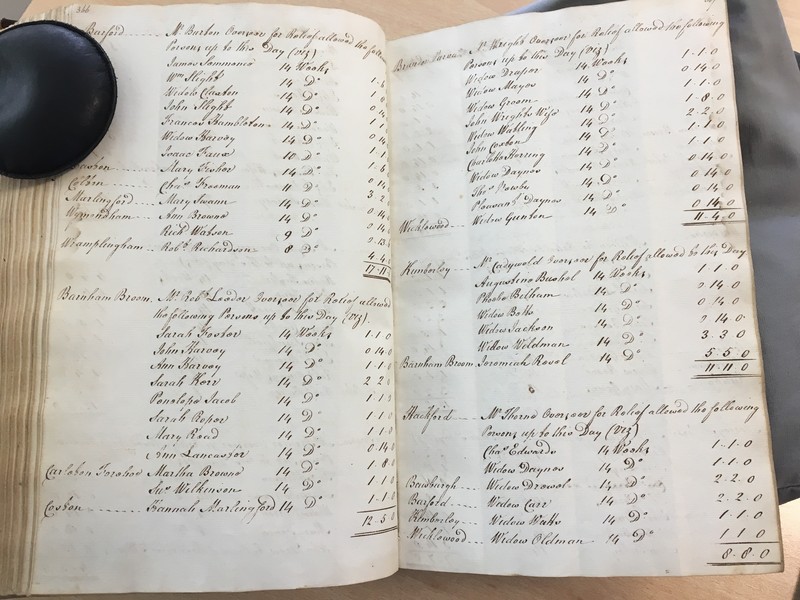 344
Barford Mr Burton Overseer for Relief allowed the following
Persons up to this Day (Viz)
James Simmonds 14 Weeks
Wm Slight 14 Do
Widow Claxton 14 Do
John Slight 14 Do
Frances Hambleton 14 Do
Widow Harvey 14 Do
Isaac 10 Do
Mary Fisher 14 Do
Colton Chas Freeman 11 Do
Marlingford Mary Swann 14 Do
Wymondham Ann Browne 14 Do
Richd Watson 9 Do
Wramplingham Robt Richardson 8 Do
Barnham Broom Mr Robt Leeder Overseer for Relief allowed
the following Persons up to this Day (Viz)
Sarah Foster 14 Weeks 1-1-0
John Harvey 14 Do 0 14 0
Ann Harvey 14 Do 1-1-0
Sarah Kerr 14 Do 2 2 0
Penelope Jacob 14 Do
Sarah Roper 14 Do 1 1 0
Mary Read 14 Do 1 1 0
Ann Lancaster 14 Do 0 14 0
Carleton Forehoe Martha Browne 14 Do 1 8 0
Wilkinson 14 Do 1-1-0
Coston Hannah Marlingford 14 Do 1-1-0
12-5-0
Brandon Mr Wright Overseer for Relief allowed the following
Persons up to this Day (Viz)
Widow Draper 14 Weeks 1-1-0
Widow Mayes 14 Do 0 14 0
Widow Groom 14 Do 1-1-0
John Wrights Wife 14 Do 1-8-0
Widow Watling 14 Do 2-2-0
John Coxton 14 Do 1-1-0
Charlotte Herring 14 Do 1-1-0
Widow Daynes 14 Do 0 14 0
Thos 14 Do 0 14 0
Pleasant Daynes 14 Do 0 14 0
Wicklewood Widow Gunton 14 Do 0 14 0
11-4-0
Kimberley Mr Cadywold Overseer for Relief allowed to this Day
Augustine Bushel 14 Weeks 1-1-0
Phoebe Belham 14 Do 0 14 0
Widow Betts 14 Do 0 14 0
Widow Jackson 14 Do 0 14 0
Widow Wildman 14 Do 3 3 0
Barnham Broom Jeremiah Revel 14 Do 5 5 0
11-11-0
Hackford Mr Therne Overseer for Relief allowed the following
Persons up to this Day (Viz)
Chas Edwards 14 Weeks 1-1-0
Widow Daynes 14 Do 1-1-0
Bawburgh Widow Drewel 14 Do 2-2-0
Barford Widow Carr 14 Do 2-2-0
Kimberley Widow Watts 14 Do 1-1-0
Wicklewood Widow Oldman 14 Do 1 1 0
8-8-0